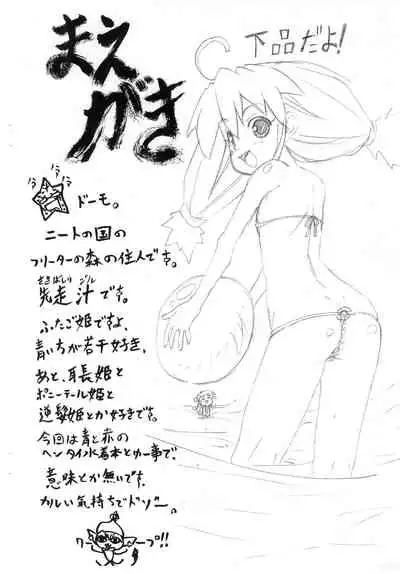 まえ
がき
下品だよ!
ドーモ。
ニートの国の
フリーターの森の住人です。
さきばしり ジル
先走 汁です。
ふたご姫ですよ、
青いちが若干好き、
あと、耳長姫と
ポニーテール姫と
逆髪姫とか好きです。
今回は青と赤の
ヘンタイ水着本とゆー事で、
意味とか無いです。
かるい気持ちでドゾー。